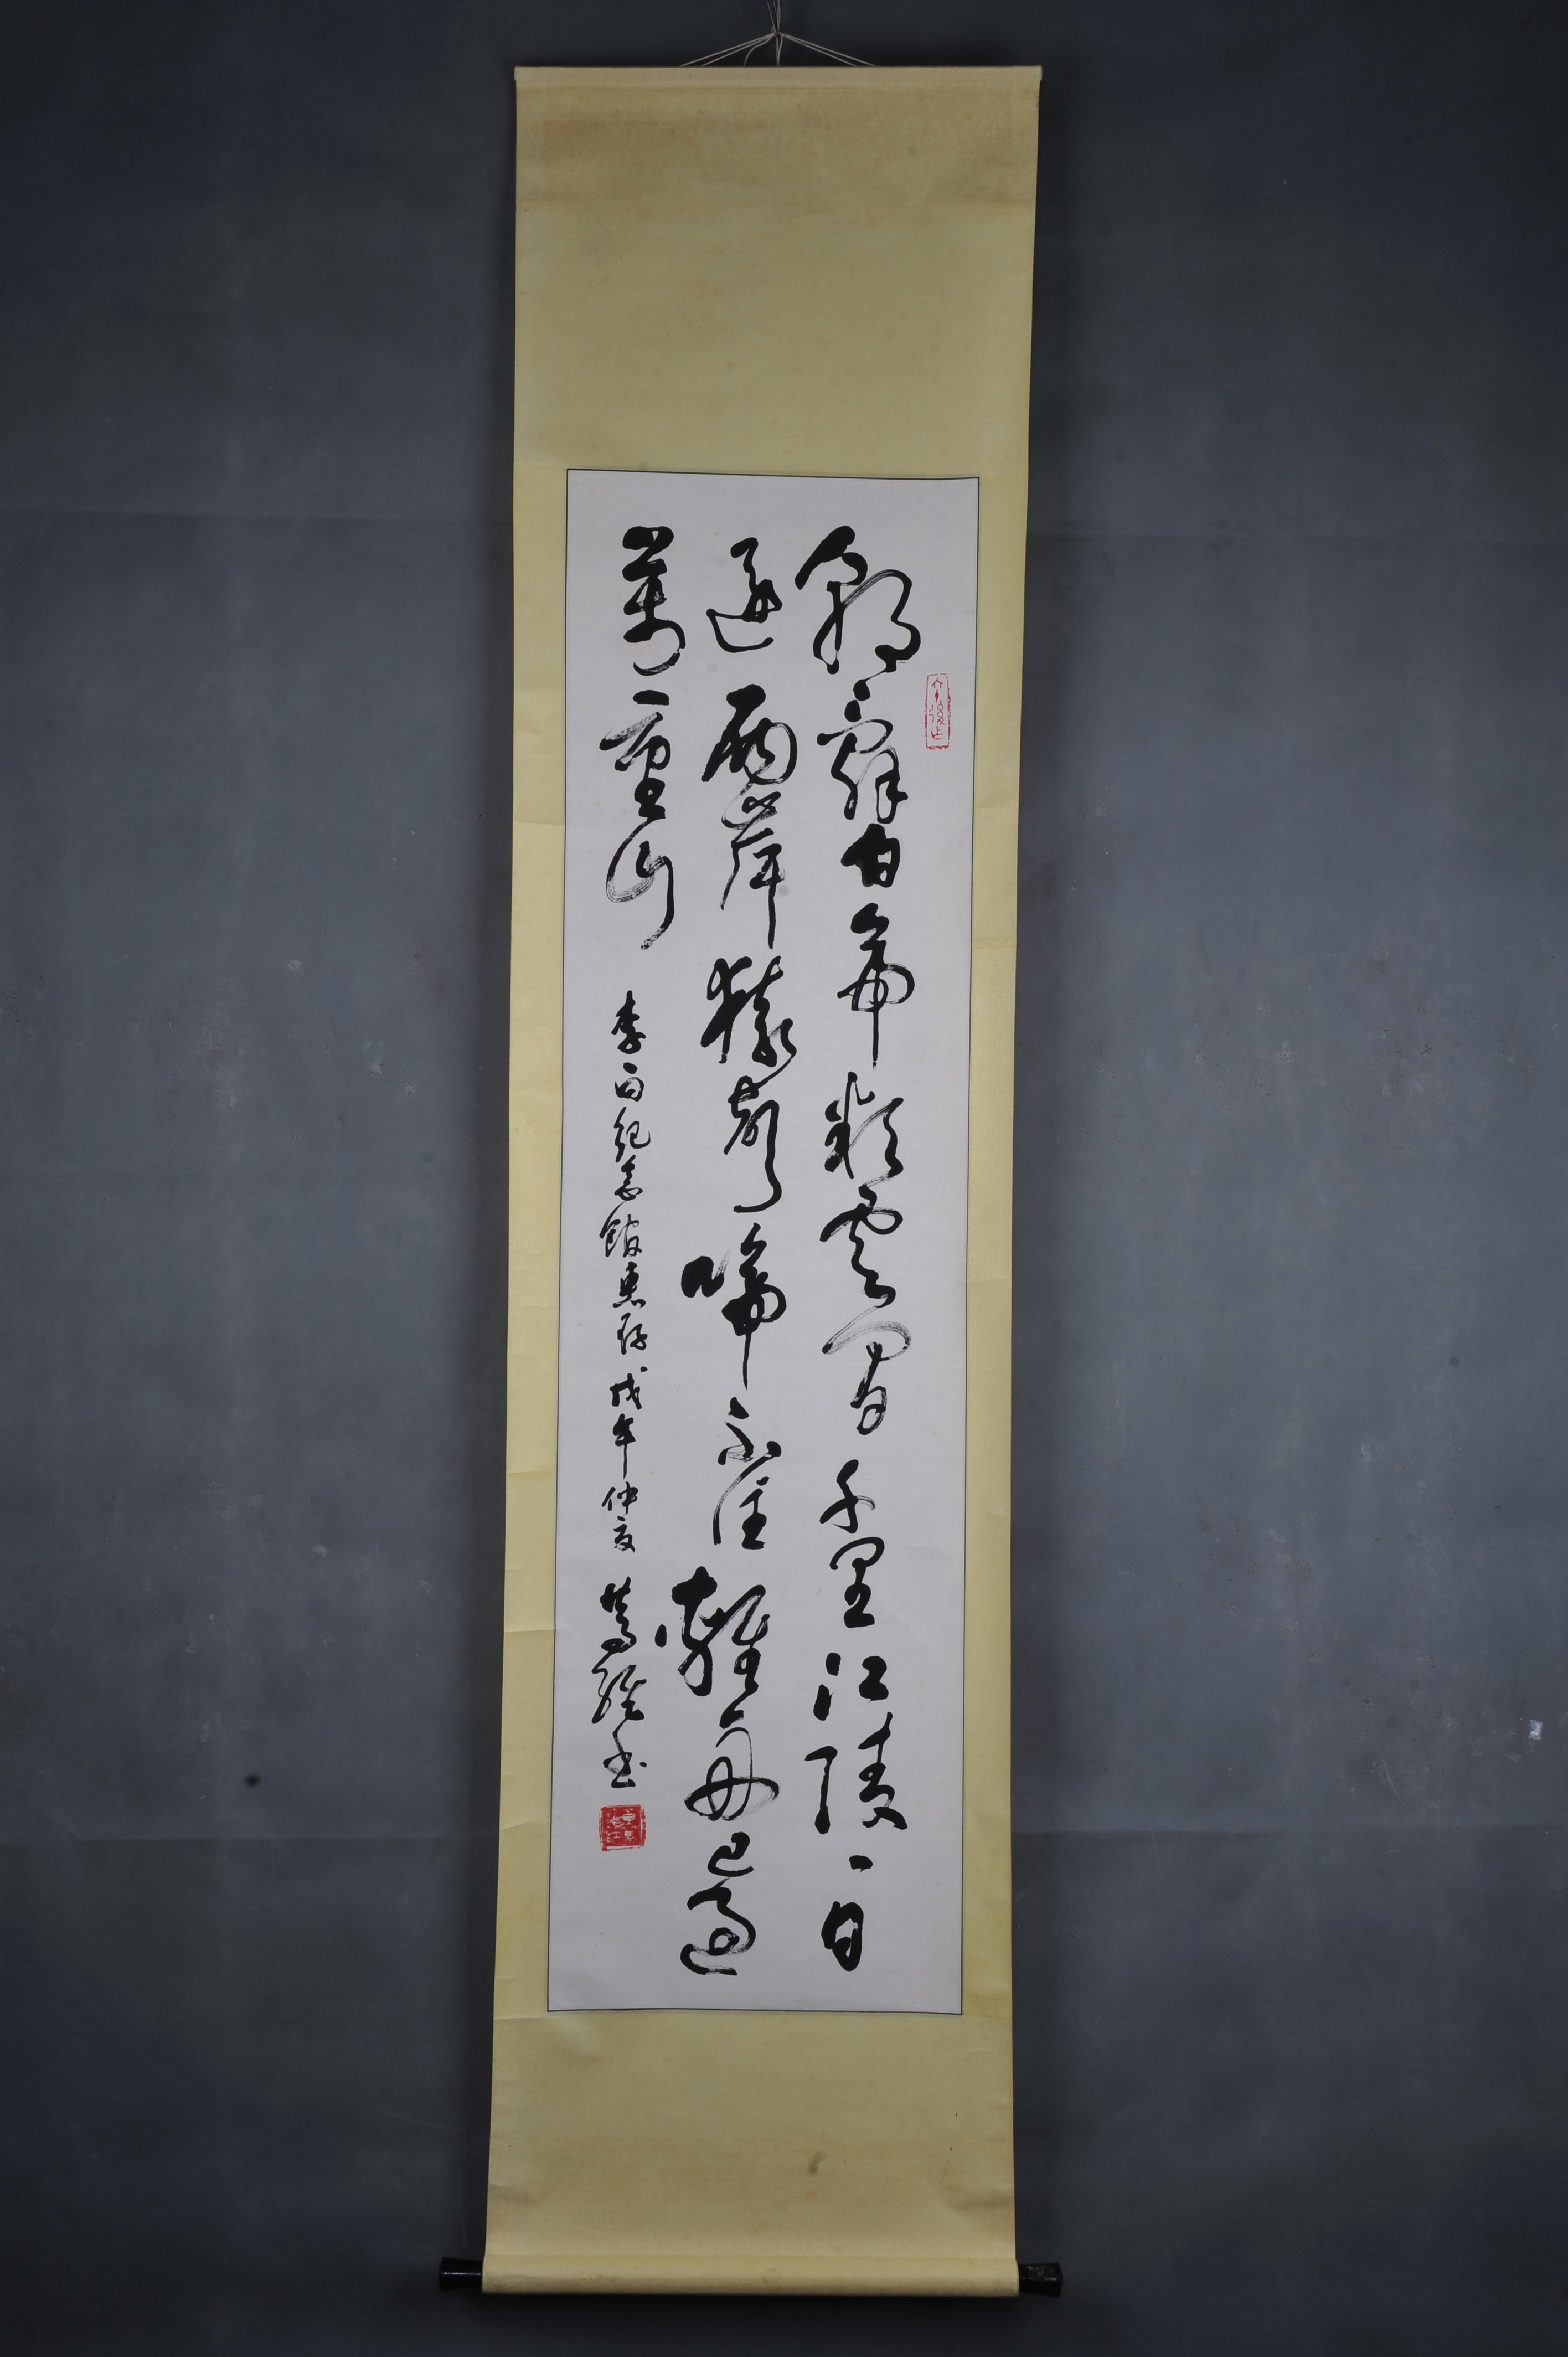 朝辭白帝彩雲間千里江陵一日
還兩岸猿聲啼不住舟已過
萬重山
李白紀念館惠存戊午仲夏書